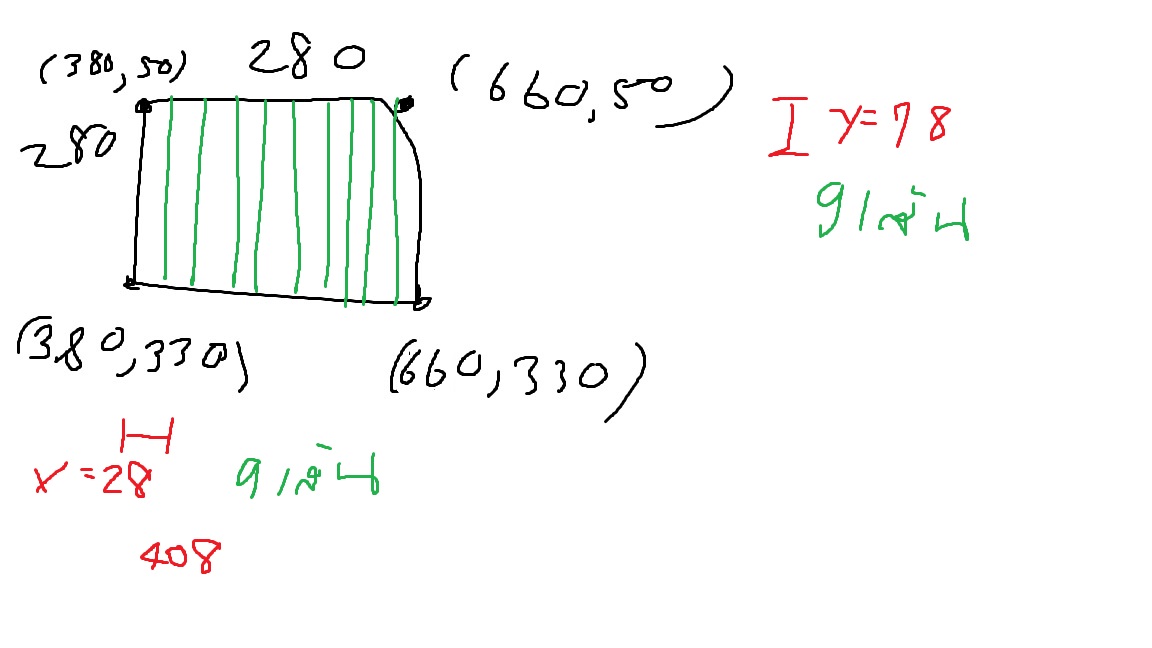 (380,50) 280 (660,50)
280
I y=78
9 เส้น
(380,330) (660,330)
x=28 9 เส้น
408